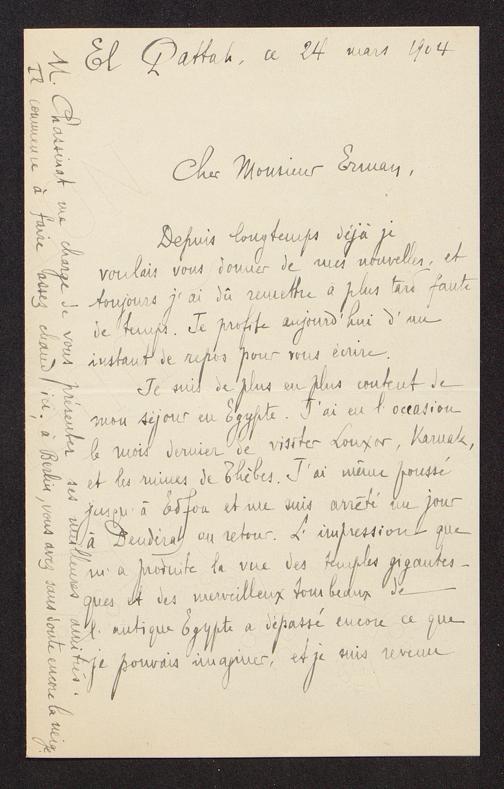 El Qattah, ce 24 mars 1904
Cher Monsieur Erman,
Depuis longtemps déjà je
voulais vous donner de mes nouvelles, et
toujours j'ai dû remettre à plus tard faute
de temps. Je profite aujourd'hui d'un
instant de repos pour vous écrire.
Je suis de plus en plus content de
mon séjour en Egypte. J'ai eu l'occasion
le mois dernier de visiter Louxor, Karnak,
et les ruines de Thèbes. J'ai même poussé
jusqu'à Edfou et me suis arrêté un jour
à Dendérah au retour. L'impression que
m'a produite la vue des temples gigantes-
ques et des merveilleux tombeaux de
l'antique Egypte a dépassé encore ce que
je pouvais imaginer, et je suis revenu
M. Chassinat me charge de vous présenter ses meilleures amitiés.
Il commence à faire assez chaud ici; à Berlin, vous avez sans doute encore la neige.